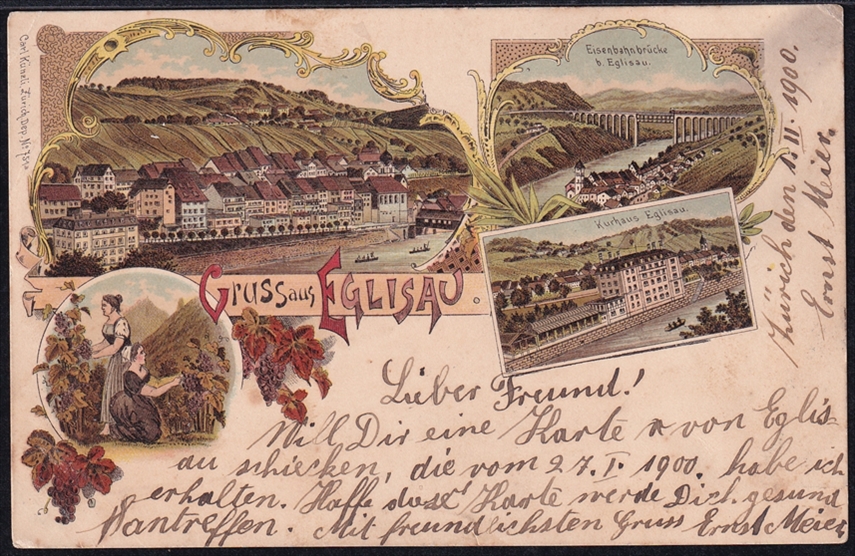 Carl Künzli, Zürich, Dep. No
Eisenbahnbrücke
b. Eglisau.
Kurhaus Eglisau.
Gruss aus Eglisau.
Zürich den 15. II. 1900.
Ernst Meier.
Lieber Freund!
Will Dir eine Karte von Eglis-
au schicken, die vom 27. I. 1900. habe ich
erhalten. Hoffe Karte werde Dich gesund
antreffen. Mit freundlichsten Gruss Ernst Meier.